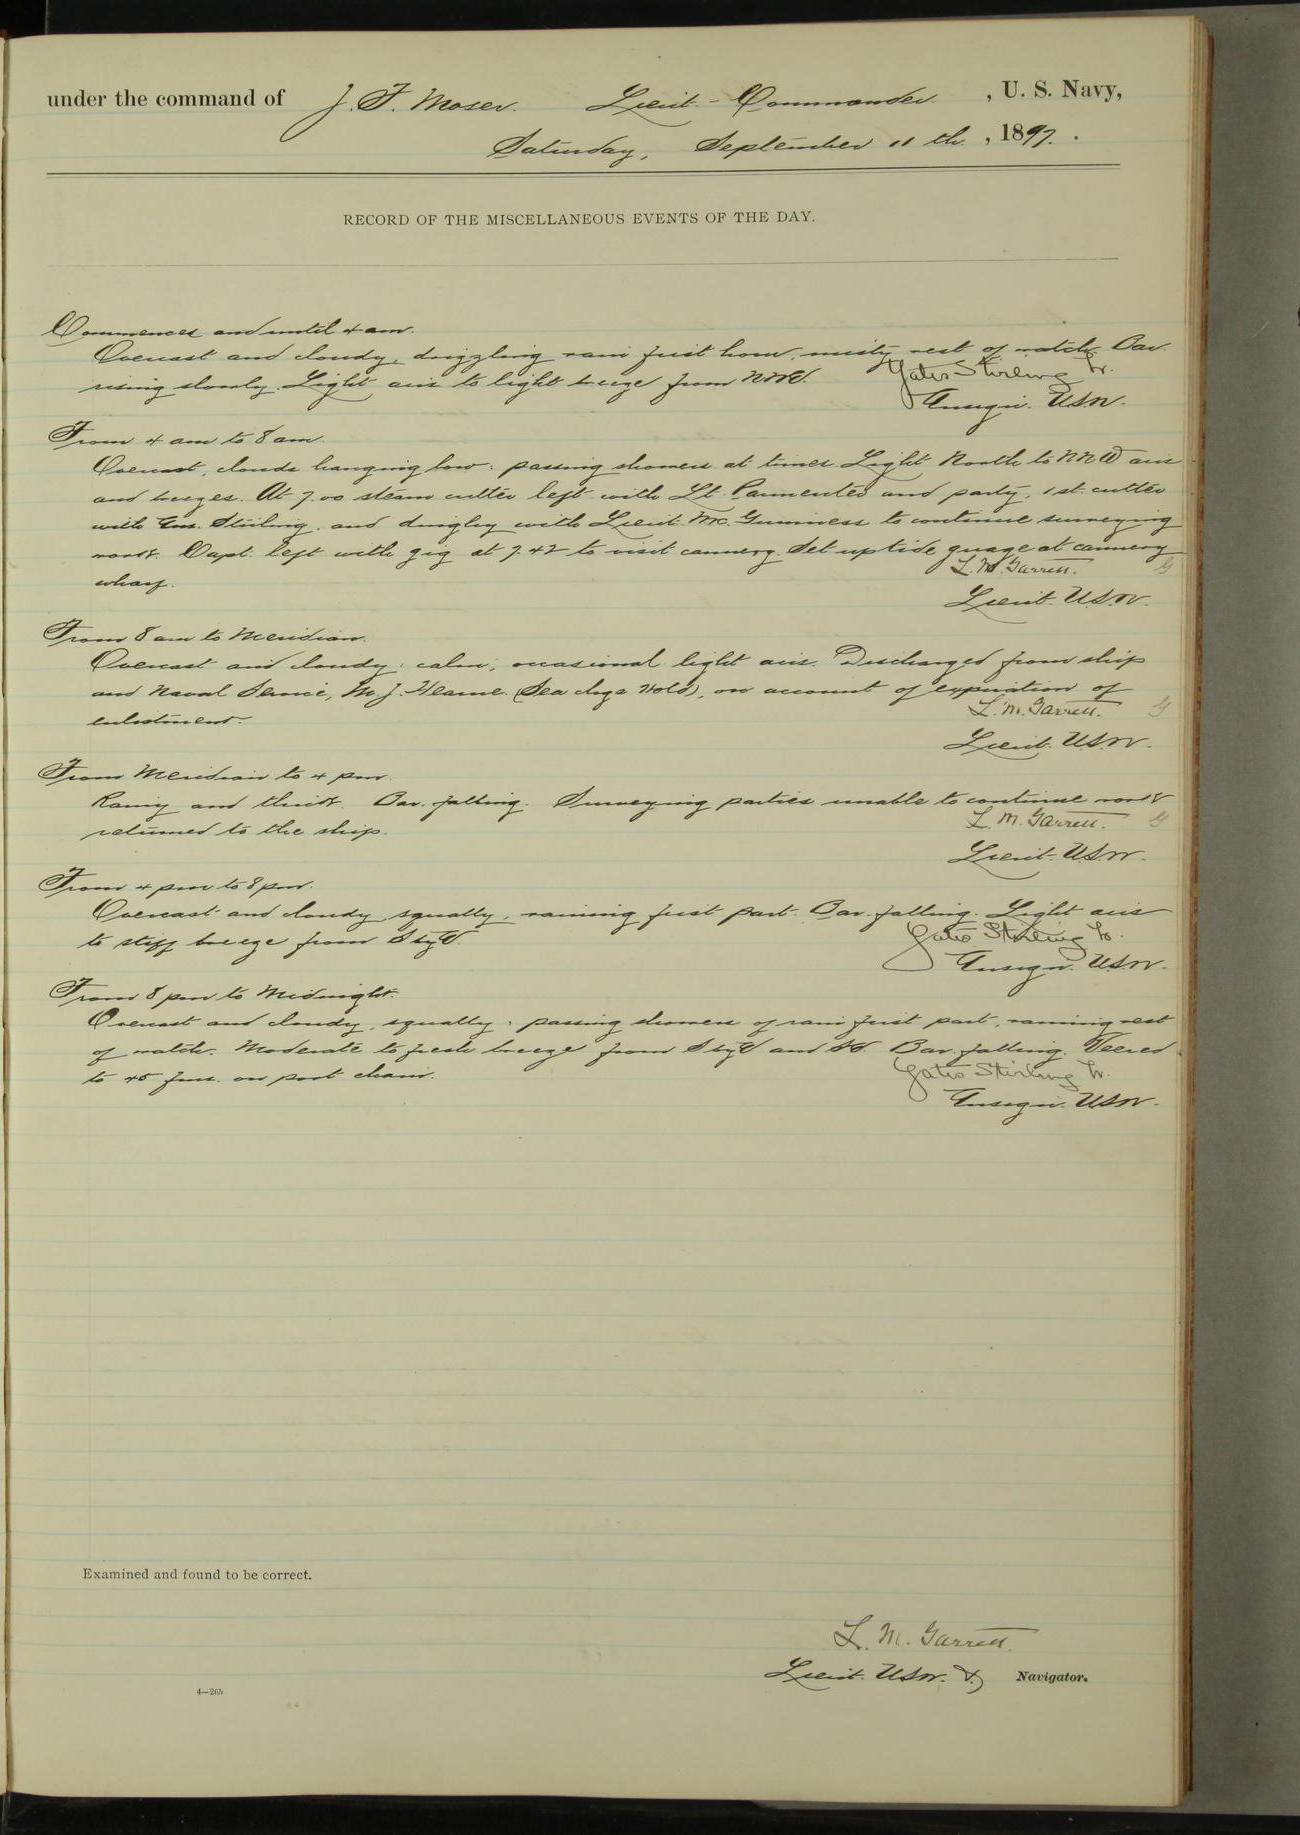 under the command of J. F. Moser. Lieut-Commander. , U. S. Navy,
Saturday, September 11th. , 1897.
RECORD OF THE MISCELLANEOUS EVENTS OF THE DAY.
Commences and until 4 am.
Overcast and cloudy, drizzling rain first hour, misty rest of watch. Bar.
rising slowly. Light airs to light breeze from NNW.
Gates Stirling Jr.
Ensign. USN.
From 4 am to 8 am.
Overcast, clouds hanging low; passing showers at times. Light North to NNW airs
and breezes. At 7.00 steam cutter left with Lt. Parmenter and party, 1st. cutter
with Ens. Stirling, and dinghy with Lieut. McGuinness to continue surveying
work. Capt. left with gig at 7.42 to visit cannery. Set up tide guage at cannery
wharf.
L. M. Garrett.
Lieut. U.S.N.
From 8 am to Meridian.
Overcast and cloudy; calm; occasional light airs. Discharged from ship
and Naval Service, M. J. Hearne (Sea chge Hold), on account of expiration of
enlistment.
L. M. Garrett.
Lieut. U.S.N.
From Meridian to 4 pm.
Rainy and thick. Bar. falling. Surveying parties unable to continue work
returned to the ship.
L. M. Garrett.
Lieut. USN.
From 4 pm to 8 pm.
Overcast and cloudy, squally, raining first part. Bar. falling. Light airs
to stiff breeze from S by E.
Gates Stirling Jr.
Ensign. U.S.N.
From 8 pm to Midnight.
Overcast and cloudy, squally; passing showers of rain first part, raining rest
of watch. Moderate to fresh breeze from S by E and Bar. falling. Veered
to 45 fms. on port chain.
Gates Stirling Jr.
Ensign. USN.
Examined and found to be correct.
L. M. Garrett.
Lieut. USN. & Navigator.
4—265